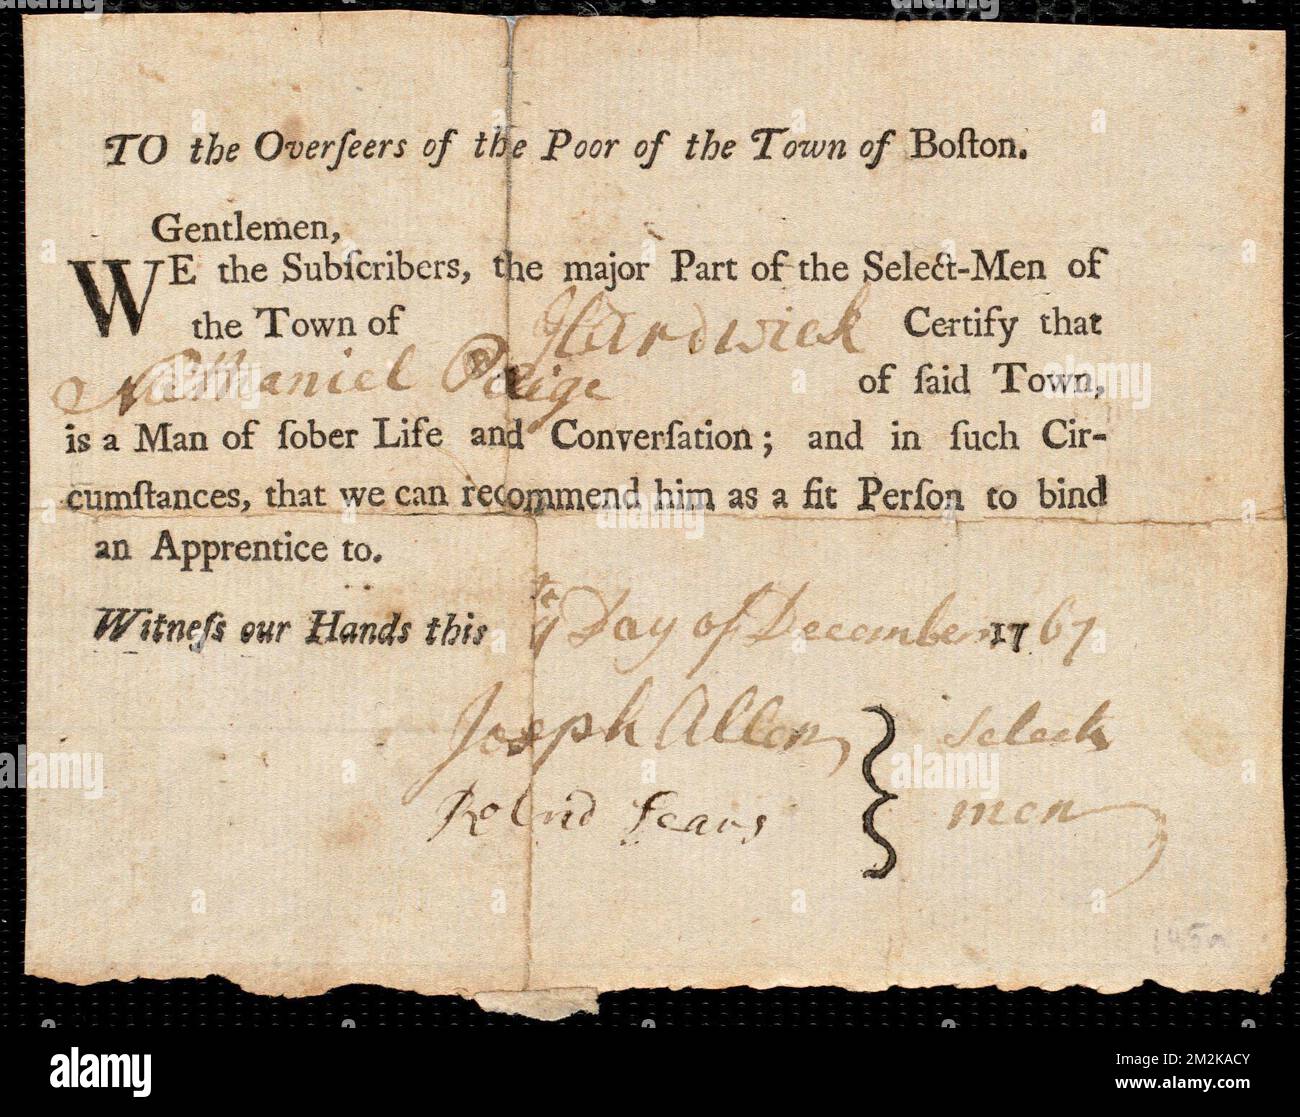 TO the Overſeers of the Poor of the Town of Boſton.
Gentlemen,
WE the Subſcribers, the major Part of the Select-Men of
the Town of Hardwick Certify that
Nathaniel Paige of ſaid Town,
is a Man of ſober Life and Converſation; and in ſuch Cir-
cumſtances, that we can recommend him as a fit Perſon to bind
an Apprentice to.
Witneſs our Hands this 9te Day of December 1767
Joseph Allen } Select
men
a alamy
Image ID: 2M2KACY
www.alamy.com